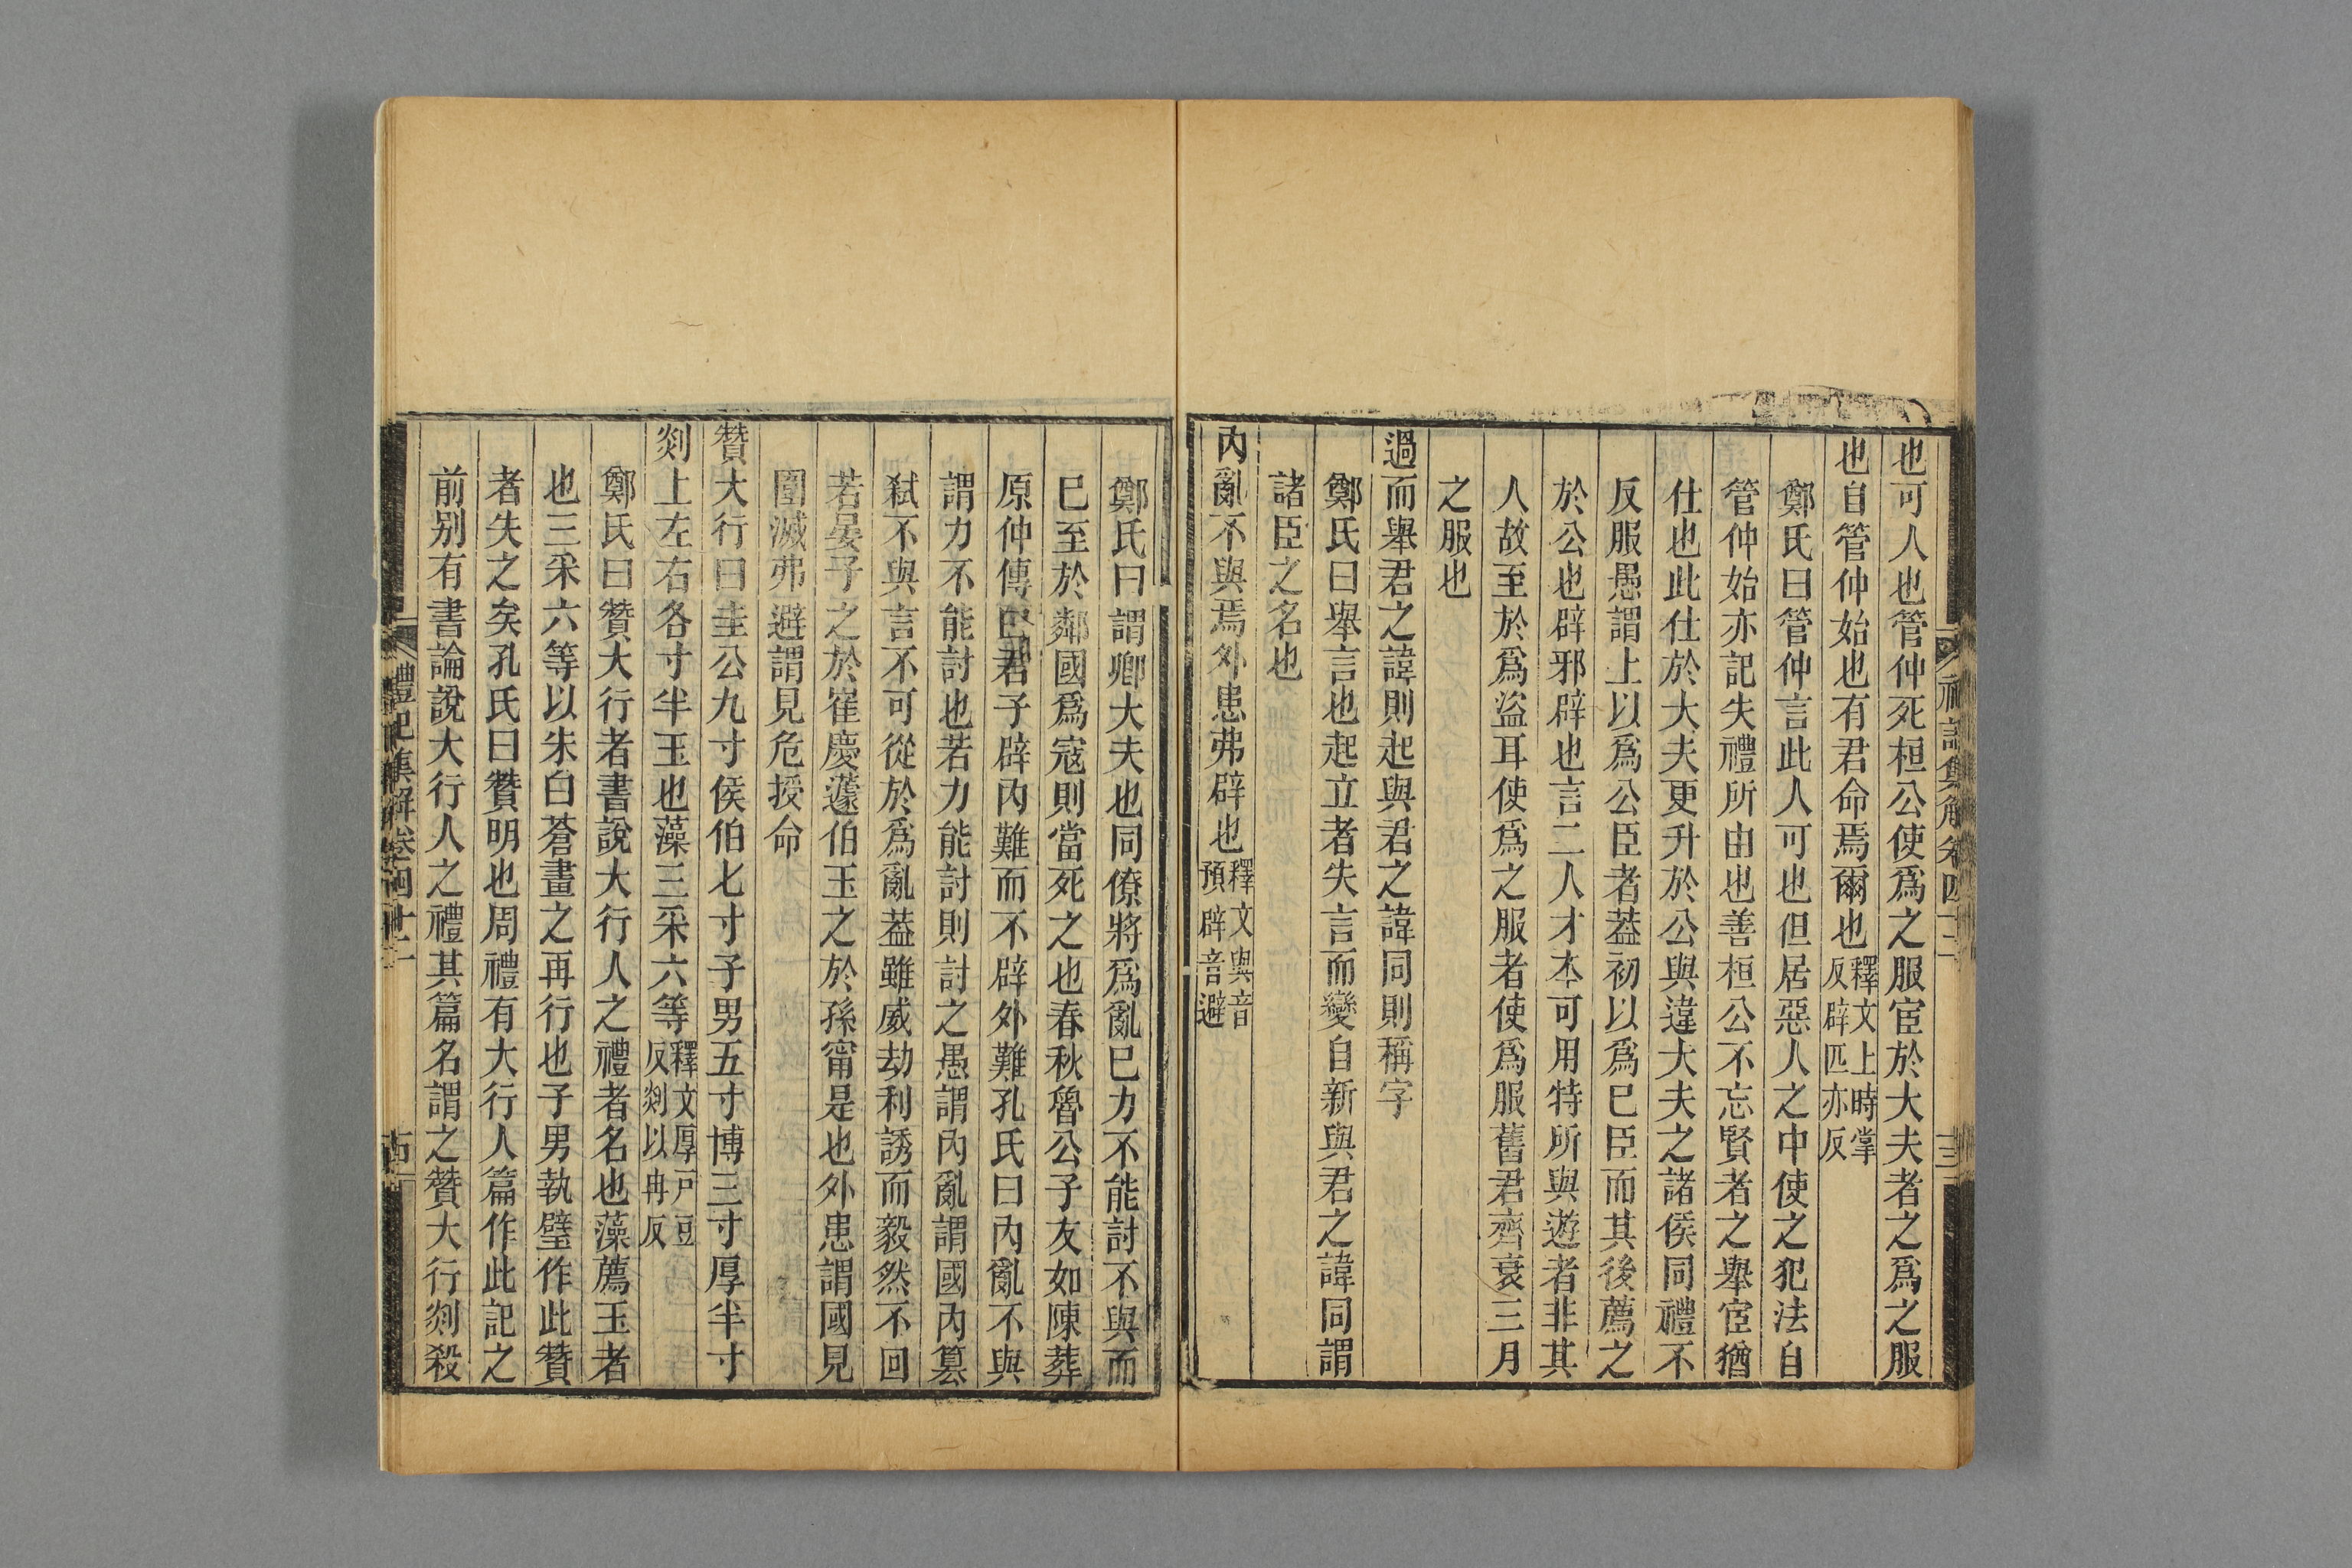 也可人也管仲死桓公使爲之服宦於大夫者之爲之服
也自管仲始也有君命焉爾也釋文上時掌反辟匹亦反
鄭氏曰管仲言此人可也但居惡人之中使之犯法自
管仲始亦記失禮所由也善桓公不忘賢者之舉宦猶
仕也此仕於大夫更升於公與違大夫之諸侯同禮不
反服愚謂上以爲公臣者葢初以爲巳臣而其後薦之
於公也辟邪辟也言二人才本可用特所與遊者非其
人故至於爲盜耳使爲之服者使爲服舊君齊衰三月
之服也
過而舉君之諱則起與君之諱同則稱字
鄭氏曰舉言也起立者失言而變自新與君之諱同謂
諸臣之名也
內亂不與焉外患弗辟也釋文與音預辟音避
鄭氏曰謂卿大夫也同僚將爲亂巳力不能討不與而
巳至於鄰國爲寇則當死之也春秋魯公子友如陳葬
原仲傳曰君子辟內難而不辟外難孔氏曰內亂不與
謂力不能討也若力能討則討之愚謂內亂謂國內篡
弑不與言不可從於爲亂葢雖威劫利誘而毅然不回
若晏子之於崔慶蘧伯玉之於孫甯是也外患謂國見
圍滅弗避謂見危授命
贊大行曰圭公九寸侯伯七寸子男五寸博三寸厚半寸
剡上左右各寸半玉也藻三采六等釋文厚戸豆反剡以冉反
鄭氏曰贊大行者書說大行人之禮者名也藻薦玉者
也三采六等以朱白蒼畫之再行也子男執璧作此贊
者失之矣孔氏曰贊明也周禮有大行人篇作此記之
前别有書論說大行人之禮其篇名謂之贊大行剡殺
禮記集解卷四十二